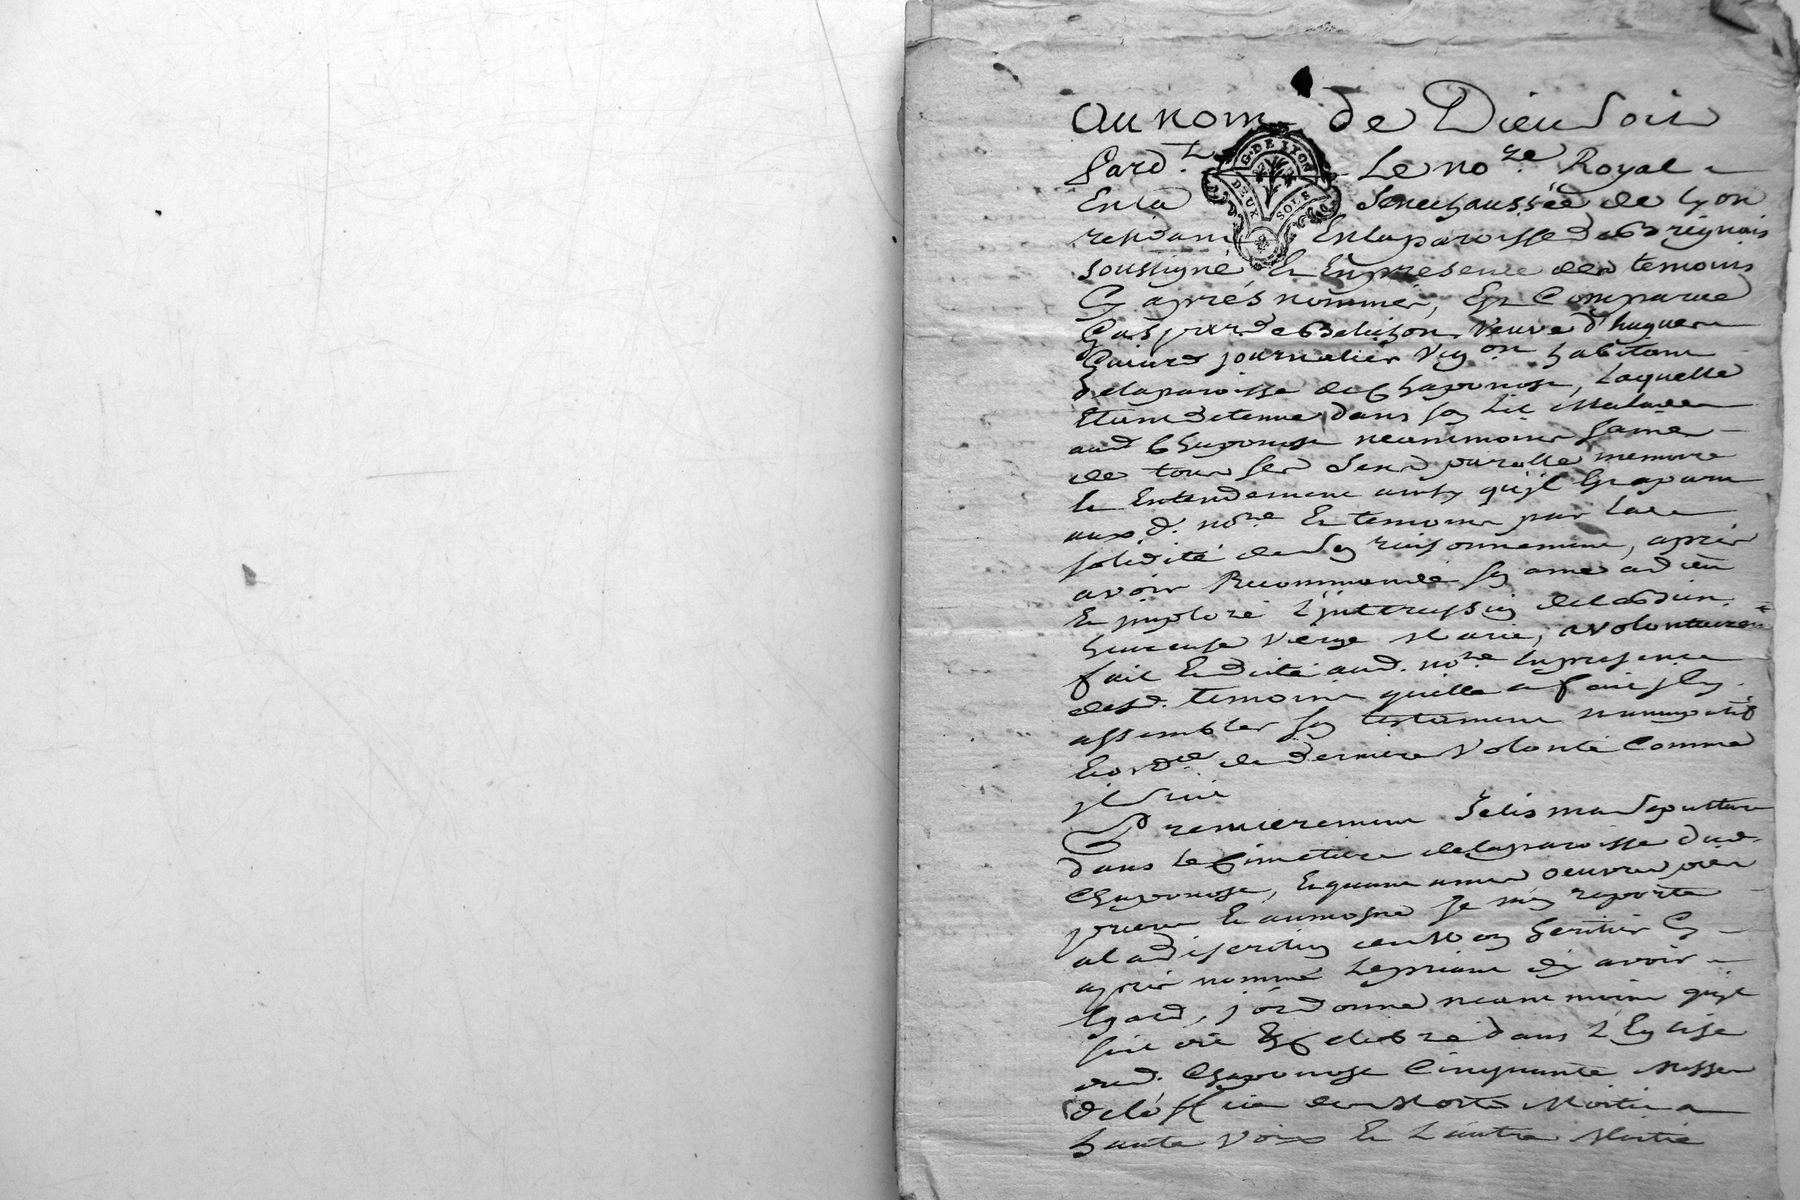 au nom de Dieu soit
Pard.t Le no.re Royal
En la Senechaussée de Lyon
residant En la paroisse de Brignais
soussigné Et En presence des temoins
Cy aprés nommés, Est Comparue
Gasparde veuve d'hugues
journalier vig.on habitant
de la paroisse de Chaponost, Laquelle
Etant detenue dans son Lit Malade
aud Chaponost neanmoins saine
de tous ses sens parolle memoire
Et Entendement ainsy qu'jl Est aparu
aux d. no.re Et temoins par la
solidité de son raisonnement, après
avoir Recommandé son ame a dieu
Et jmploré L'jntercession de la bien
heureuse vierge Marie, a volontairem.t
fait Et dicté aud. no.re En presence
desd. temoins quelle a fait jcy
assembler son testament nuncupatif
Et ord.re de derniere volonté Comme
jl suit
Premierement Jelis ma Sepulture
dans le Cimetiere de la paroisse dud.
Chaponost, Et quant a mes oeuvres pies
prieres Et aumosne Je m'en raporte
a la discretion de Mon heritier Cy
après nommé Le priant d'y avoir
Egard, j'ordonne neant moins qu'jl
soit dit Et Celebré dans L'Eglise
dud. Chaponost Cinquante Messes
de l'office des Morts Moitié a
haute voix Et L'autre Moitié
G. DE LYON
DEUX SOLS